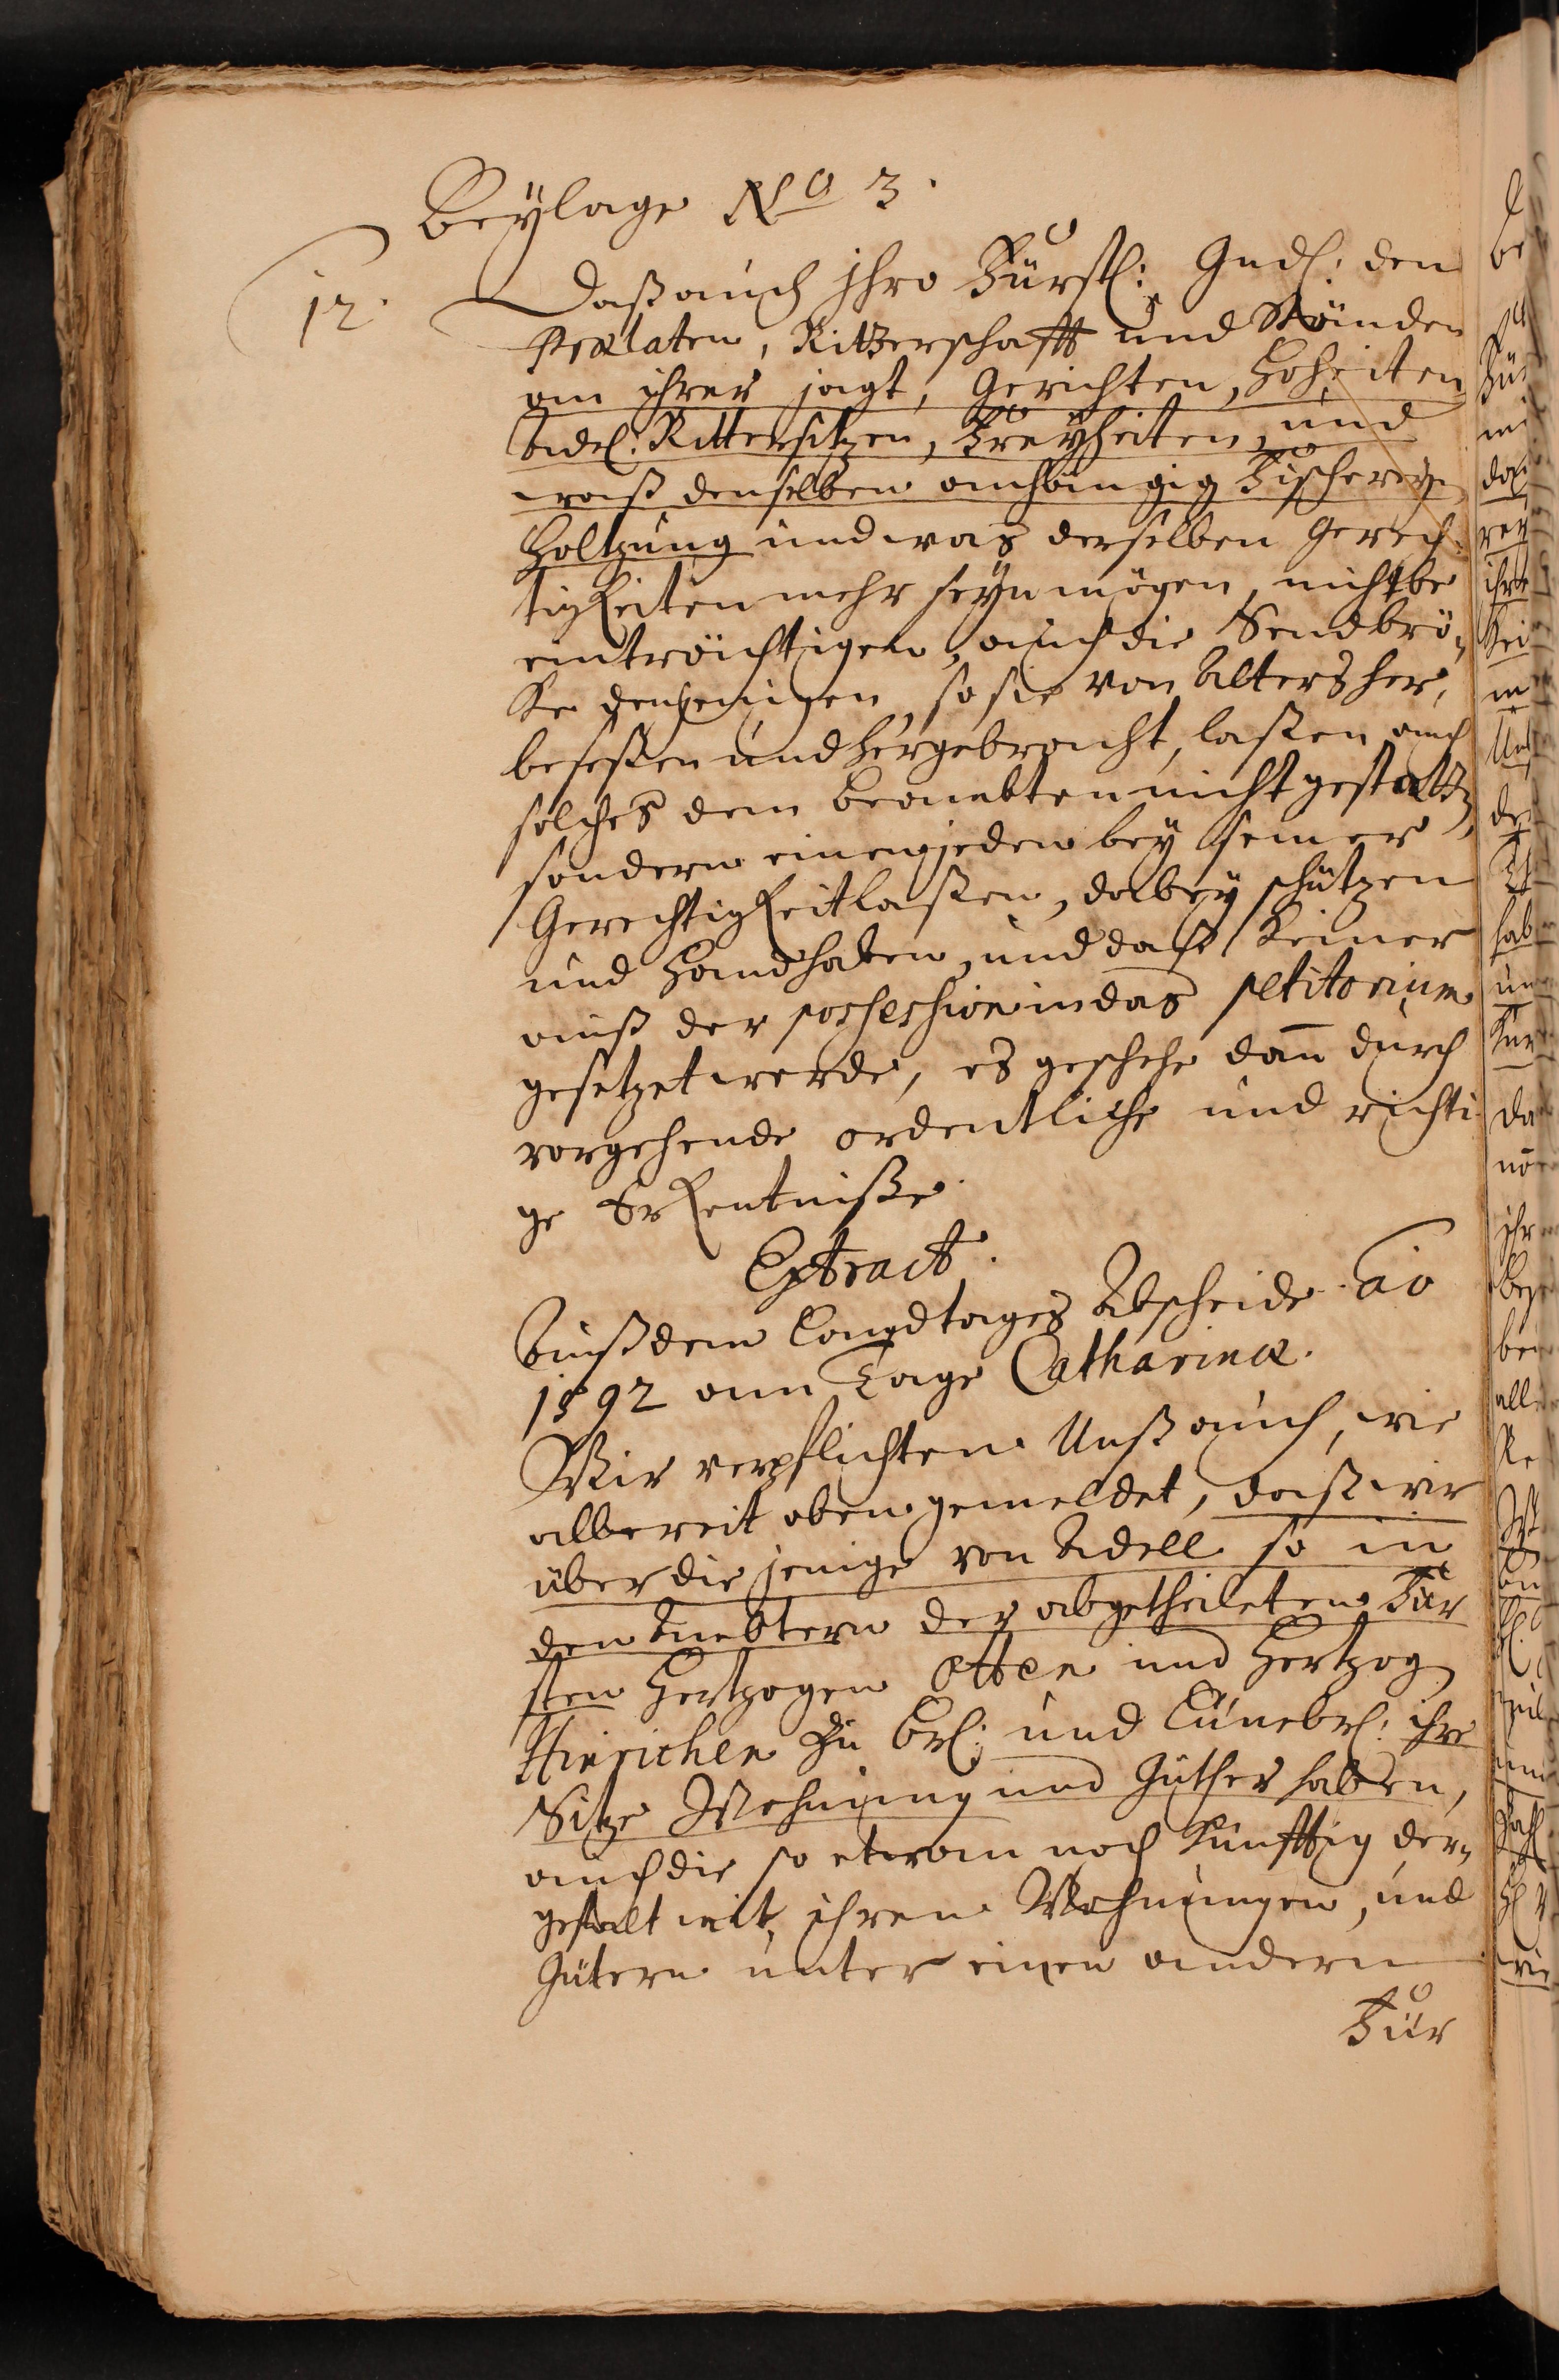 Beylage No 3.
12. Daß auch ihro Fürstl: Gnd: den
Prælaten, Ritterschafft und Ständen
an ihrer jagt, Gerichten, Hoheiten
Adel: Rittersitzen, Freyheiten, und
waß denselben anhängig Fischereyen
Holtzung und was derselben Gerech-
tigkeiten mehr seyn mögen, nicht be
einträchtigen, auch die Sendbrö-
ke denjenigen, so sie von Alters her,
beseßen und hergebracht, laßen auch
solches dem Beambten nicht gestatten,
sondern einem jeden bey seiner
Gerechtigkeit laßen, dabey schützen
und Handhaben, und daß Keiner
auß der possession in das petitorium
gesetzet werde, es geschehe dann durch
vorgehende ordentliche und richti
ge Erkentniße.
Extract.
Auß dem Landtages Abscheide Ao
1592 am Tage Catharinæ.
Wir verpflichten Unß auch, wie
albereit oben gemeldet, daß wir
über die jenige von Adell so in
den Aembtern der abgetheileten Für
sten Hertzogen Otten und Hertzog
Hinrichen zu Br: und Lünebr: ihre
Sitze Wohnung und Güther haben,
auch die so etwan noch Künfftig der-
gestalt mit ihren Wohnungen, und
Gütern unter einen andern
Für